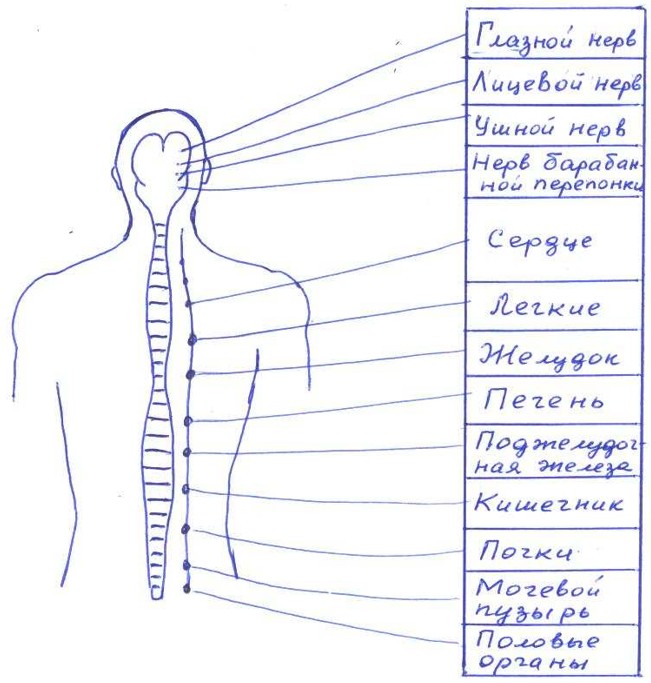 Глазной нерв
Лицевой нерв
Ушной нерв
Нерв барабан-
ной перепонки
Сердце
Легкие
Желудок
Печень
Поджелудоч-
ная железа
Кишечник
Почки
Мочевой
пузырь
Половые
органы